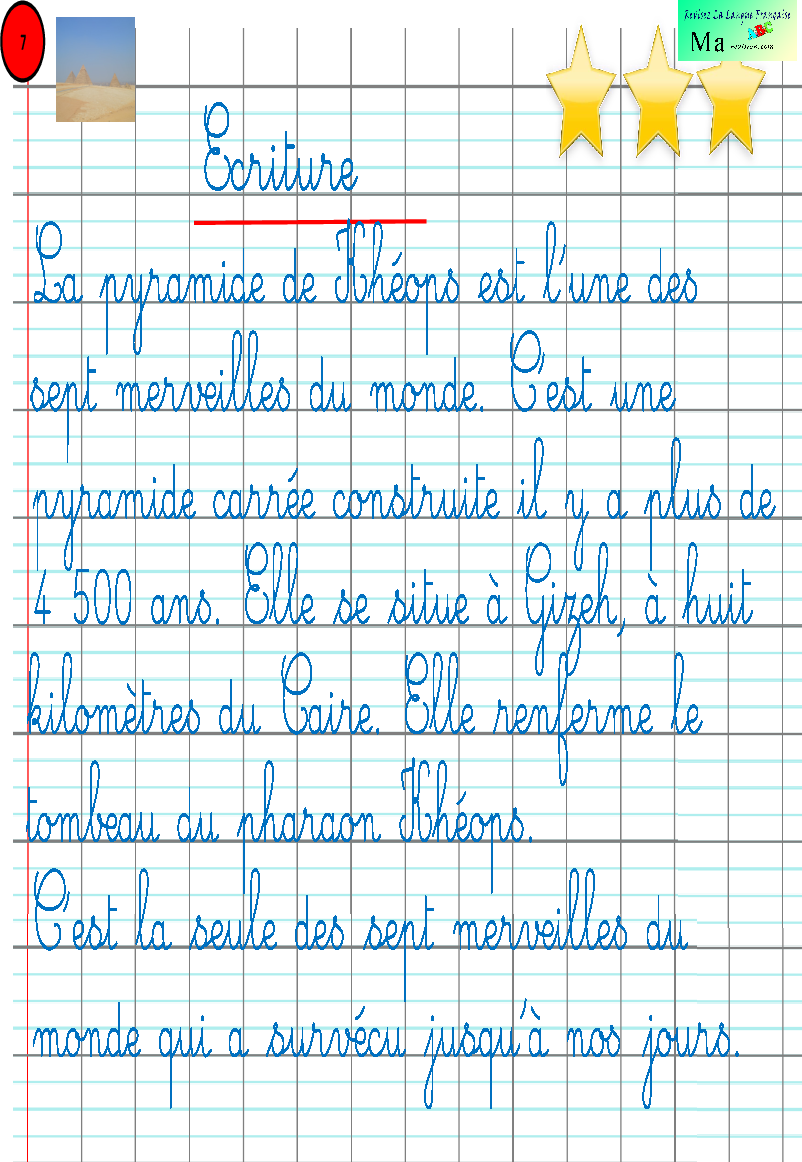 7
Revisez La Langue Française
ABC
Ma
Ecriture
La pyramide de Khéops est l'une des
sept merveilles du monde. C'est une
pyramide carrée construite il y a plus de
4 500 ans. Elle se situe à Gizeh, à huit
kilomètres du Caire. Elle renferme le
tombeau du pharaon Khéops.
C'est la seule des sept merveilles du
monde qui a survécu jusqu'à nos jours.